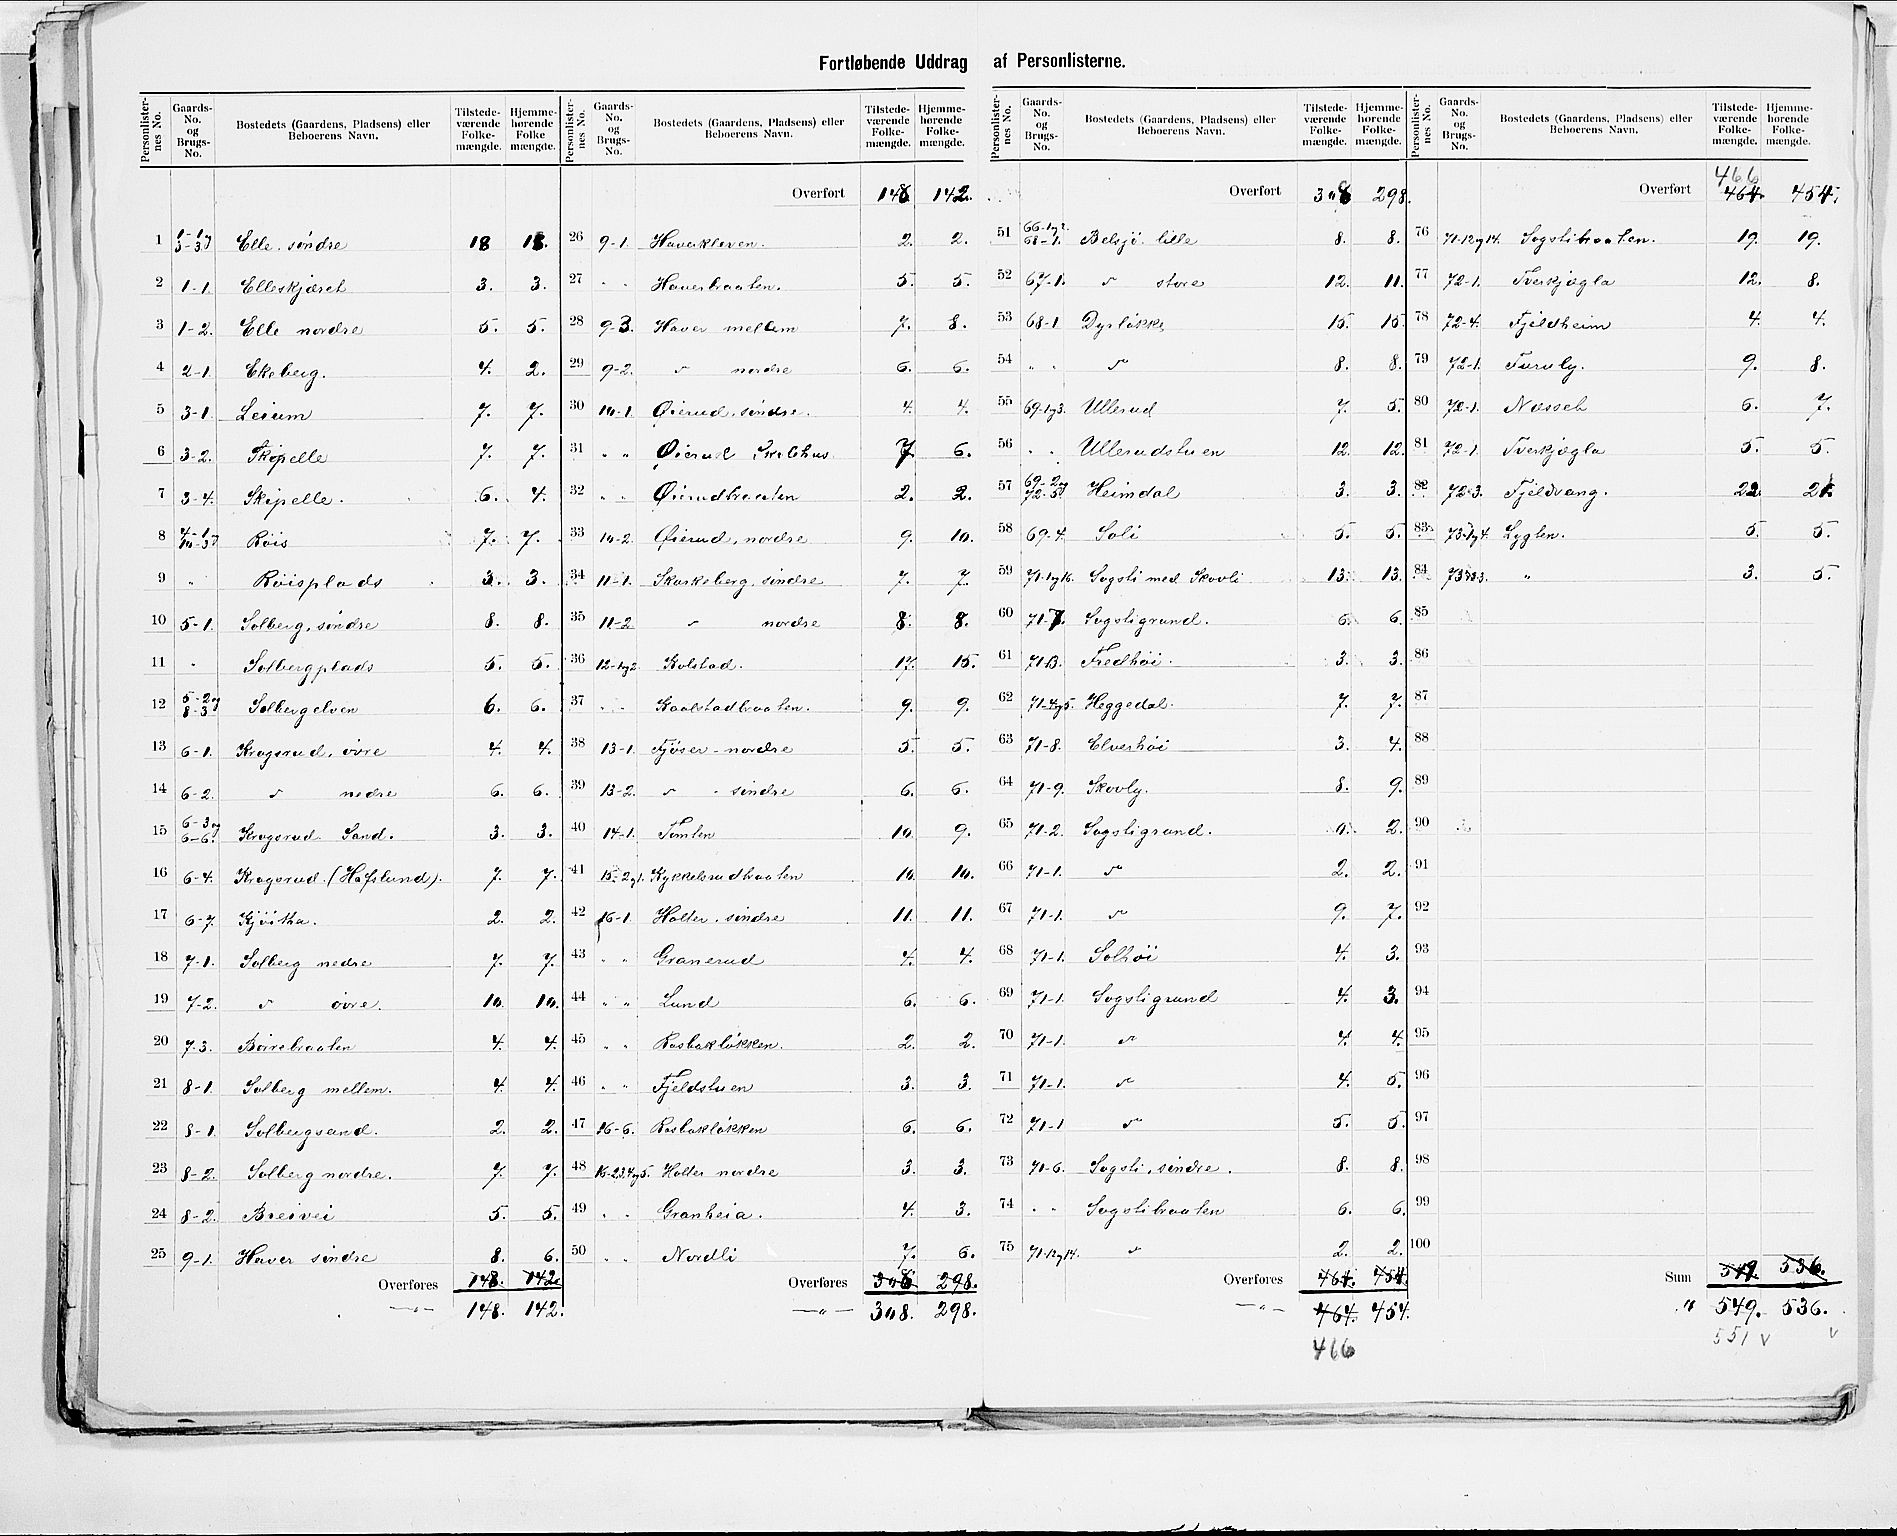 Fortløbende Uddrag af Personlisterne.
Personlister-nes No. | Gaards-No. og Brugs-No. | Bostedets (Gaardens, Pladsens) eller Beboerens Navn. | Tilstede-værende Folke-mængde. | Hjemme-hørende Folke mængde.
1 | 1-1 og 3-3 | Elle, söndre | 18 | 18.
2 | 1-1. | Elleskjæret | 3. | 3.
3 | 1-2. | Elle nordre | 5. | 5.
4 | 2-1. | Ekeberg. | 4. | 2.
5 | 3-1. | Leium | 7. | 7.
6 | 3-2. | Skipelle | 7. | 7.
7 | 3-4. | Skipelle. | 6. | 4.
8 | Röis | 7. | 7.
9 | " | Röisplads | 3. | 3.
10 | 5-1. | Solberg, söndre | 8. | 8.
11 | " | Solbergplads | 5. | 5.
12 | 5-2 og 8-3 | Solbergelven | 6. | 6.
13 | 6-1. | Krogsrud, övre | 4. | 4.
14 | 6-2. | " nedre | 6. | 6.
15 | 6-3 og 6-6. | Krogsrud Sand. | 3. | 3.
16 | 6-4. | Krogsrud (Hafslund). | 7. | 7.
17 | 6-7. | 2. | 2.
18 | 7-1. | Solberg nedre | 7. | 7.
19 | 7-2. | " övre. | 10. | 10.
20 | 7.3. | 4. | 4.
21 | 8-1. | Solberg mellem. | 4. | 4.
22 | 8-1. | Solbergsand. | 2. | 2.
23 | 8-2. | Solberg nordre. | 7. | 7.
24 | 8-2. | Breivei | 5. | 5.
25 | 9-1. | Haver söndre | 8. | 6.
Overføres | 148. | 142.
—"— | 148. | 142.
Personlister-nes No. | Gaards-No. og Brugs-No. | Bostedets (Gaardens, Pladsens) eller Beboerens Navn. | Tilstede-værende Folke-mængde. | Hjemme-hørende Folke-mængde.
Overført | 148 | 142.
26 | 9-1. | Haverkleven. | 2. | 2.
27 | " " | Haverbraaten. | 5. | 5.
28 | 9-3. | Haver mellem | 7. | 8.
29 | 9-2. | " nordre | 6. | 6.
30 | 10-1. | Øierud, söndre. | 4. | 4.
31 | " " | Øierud | 7 | 6.
32 | " " | Øierudbraaten | 2. | 2.
33 | 10-2. | Øierud, nordre | 9. | 10.
34 | 11-1. | Skorkeberg, söndre | 7. | 7.
35 | 11-2 | " nordre | 8. | 8.
36 | 12-1og2. | Kolstad. | 17. | 15.
37 | " " | Kaalstadbraaten. | 9. | 9.
38 | 13-1. | Fjöser-nordre | 5. | 5.
39 | 13-2. | " - söndre | 6. | 6.
40 | 14-1. | Tömten | 10. | 9.
41 | Kykkelsrudbraaten | 10. | 10.
42 | 16-1. | Holter, söndre | 11. | 11.
43 | " " | Granerud | 4. | 4.
44 | " " | Lund | 6. | 6.
45 | " " | Rosbaklökken. | 2. | 2.
46 | " " | Fjeldstuen | 3. | 3.
47 | 16-6. | Rosbaklökken | 6. | 6.
48 | 16-2.3.4og5. | Holter nordre | 3. | 3.
49 | " " | Granheia. | 4. | 3.
50 | " " | Nordli | 7. | 6.
Overføres | 308 | 298.
—"— | 308. | 298.
Personlister-nes No. | Gaards-No. og Brugs-No. | Bostedets (Gaardens, Pladsens) eller Beboerens Navn. | Tilstede-værende Folke-mængde. | Hjemme-hørende Folke-mængde.
Overført | 308 | 298.
51 | 66-1og2. 68-1. | Belsjö lille | 8. | 8.
52 | 67-1. | " store | 12. | 11.
53 | 68-1. | Dyrlökke | 15. | 15.
54 | " " | " | 8. | 8.
55 | 69-1og3. | Ullerud | 7. | 5.
56 | " " | Ullerudstuen | 12. | 12.
57 | 69-2og 72-5 | Heimdal | 3. | 3.
58 | 69-4. | Soli | 5. | 5.
59 | 71-1og16. | Sogsti med Skovli | 13. | 13.
60 | 71-7. | Sogstigrund. | 6. | 6.
61 | 71-13. | Fredhöi. | 3. | 3.
62 | 71-4og5. | Heggedal. | 7. | 7.
63 | 71-8. | Elverhöi | 3. | 4.
64 | 71-9. | Skovly. | 8. | 9.
65 | 71-2. | Sogstigrund. | 0. | 2.
66 | 71-1. | " | 2. | 2.
67 | 71-1. | " | 9. | 7.
68 | 71-1. | Solhöi | 4. | 3.
69 | 71-1. | Sogstigrund | 4. | 3.
70 | 71-1. | " | 4. | 4.
71 | 71-1. | " | 4. | 5.
72 | 71-1 | " | 5. | 5.
73 | 71-6. | Sogsti, söndre. | 8. | 8.
74 | " " | Sogstibraaten | 6. | 6.
75 | 71-12og14. | " | 2. | 2.
Overføres | 464. | 454.
—"— | 464. | 454.
466
Personlister-nes No. | Gaards-No. og Brugs-No. | Bostedets (Gaardens, Pladsens) eller Beboerens Navn. | Tilstede-værende Folke-mængde. | Hjemme-hørende Folke-mængde.
466
Overført | 464. | 454.
76 | 71-12og14. | Sogstibraaten. | 19. | 19.
77 | 72-1. | Tverkjægla | 12. | 8.
78 | 72-4. | Fjeldheim | 4. | 4.
79 | 72-1. | Furuly. | 9. | 8.
80 | 72-1. | Næsset | 6. | 7.
81 | 72-1. | Tverkjægla | 5. | 5.
82 | 72-3. | Fjeldvang. | 22. | 21.
83 | 73-1og4. | Lygten. | 5. | 5.
84 | " | 3. | 5.
85
86
87
88
89
90
91
92
93
94
95
96
97
98
99
100
Sum | 536.
" | 549. | 536.
551 v | v